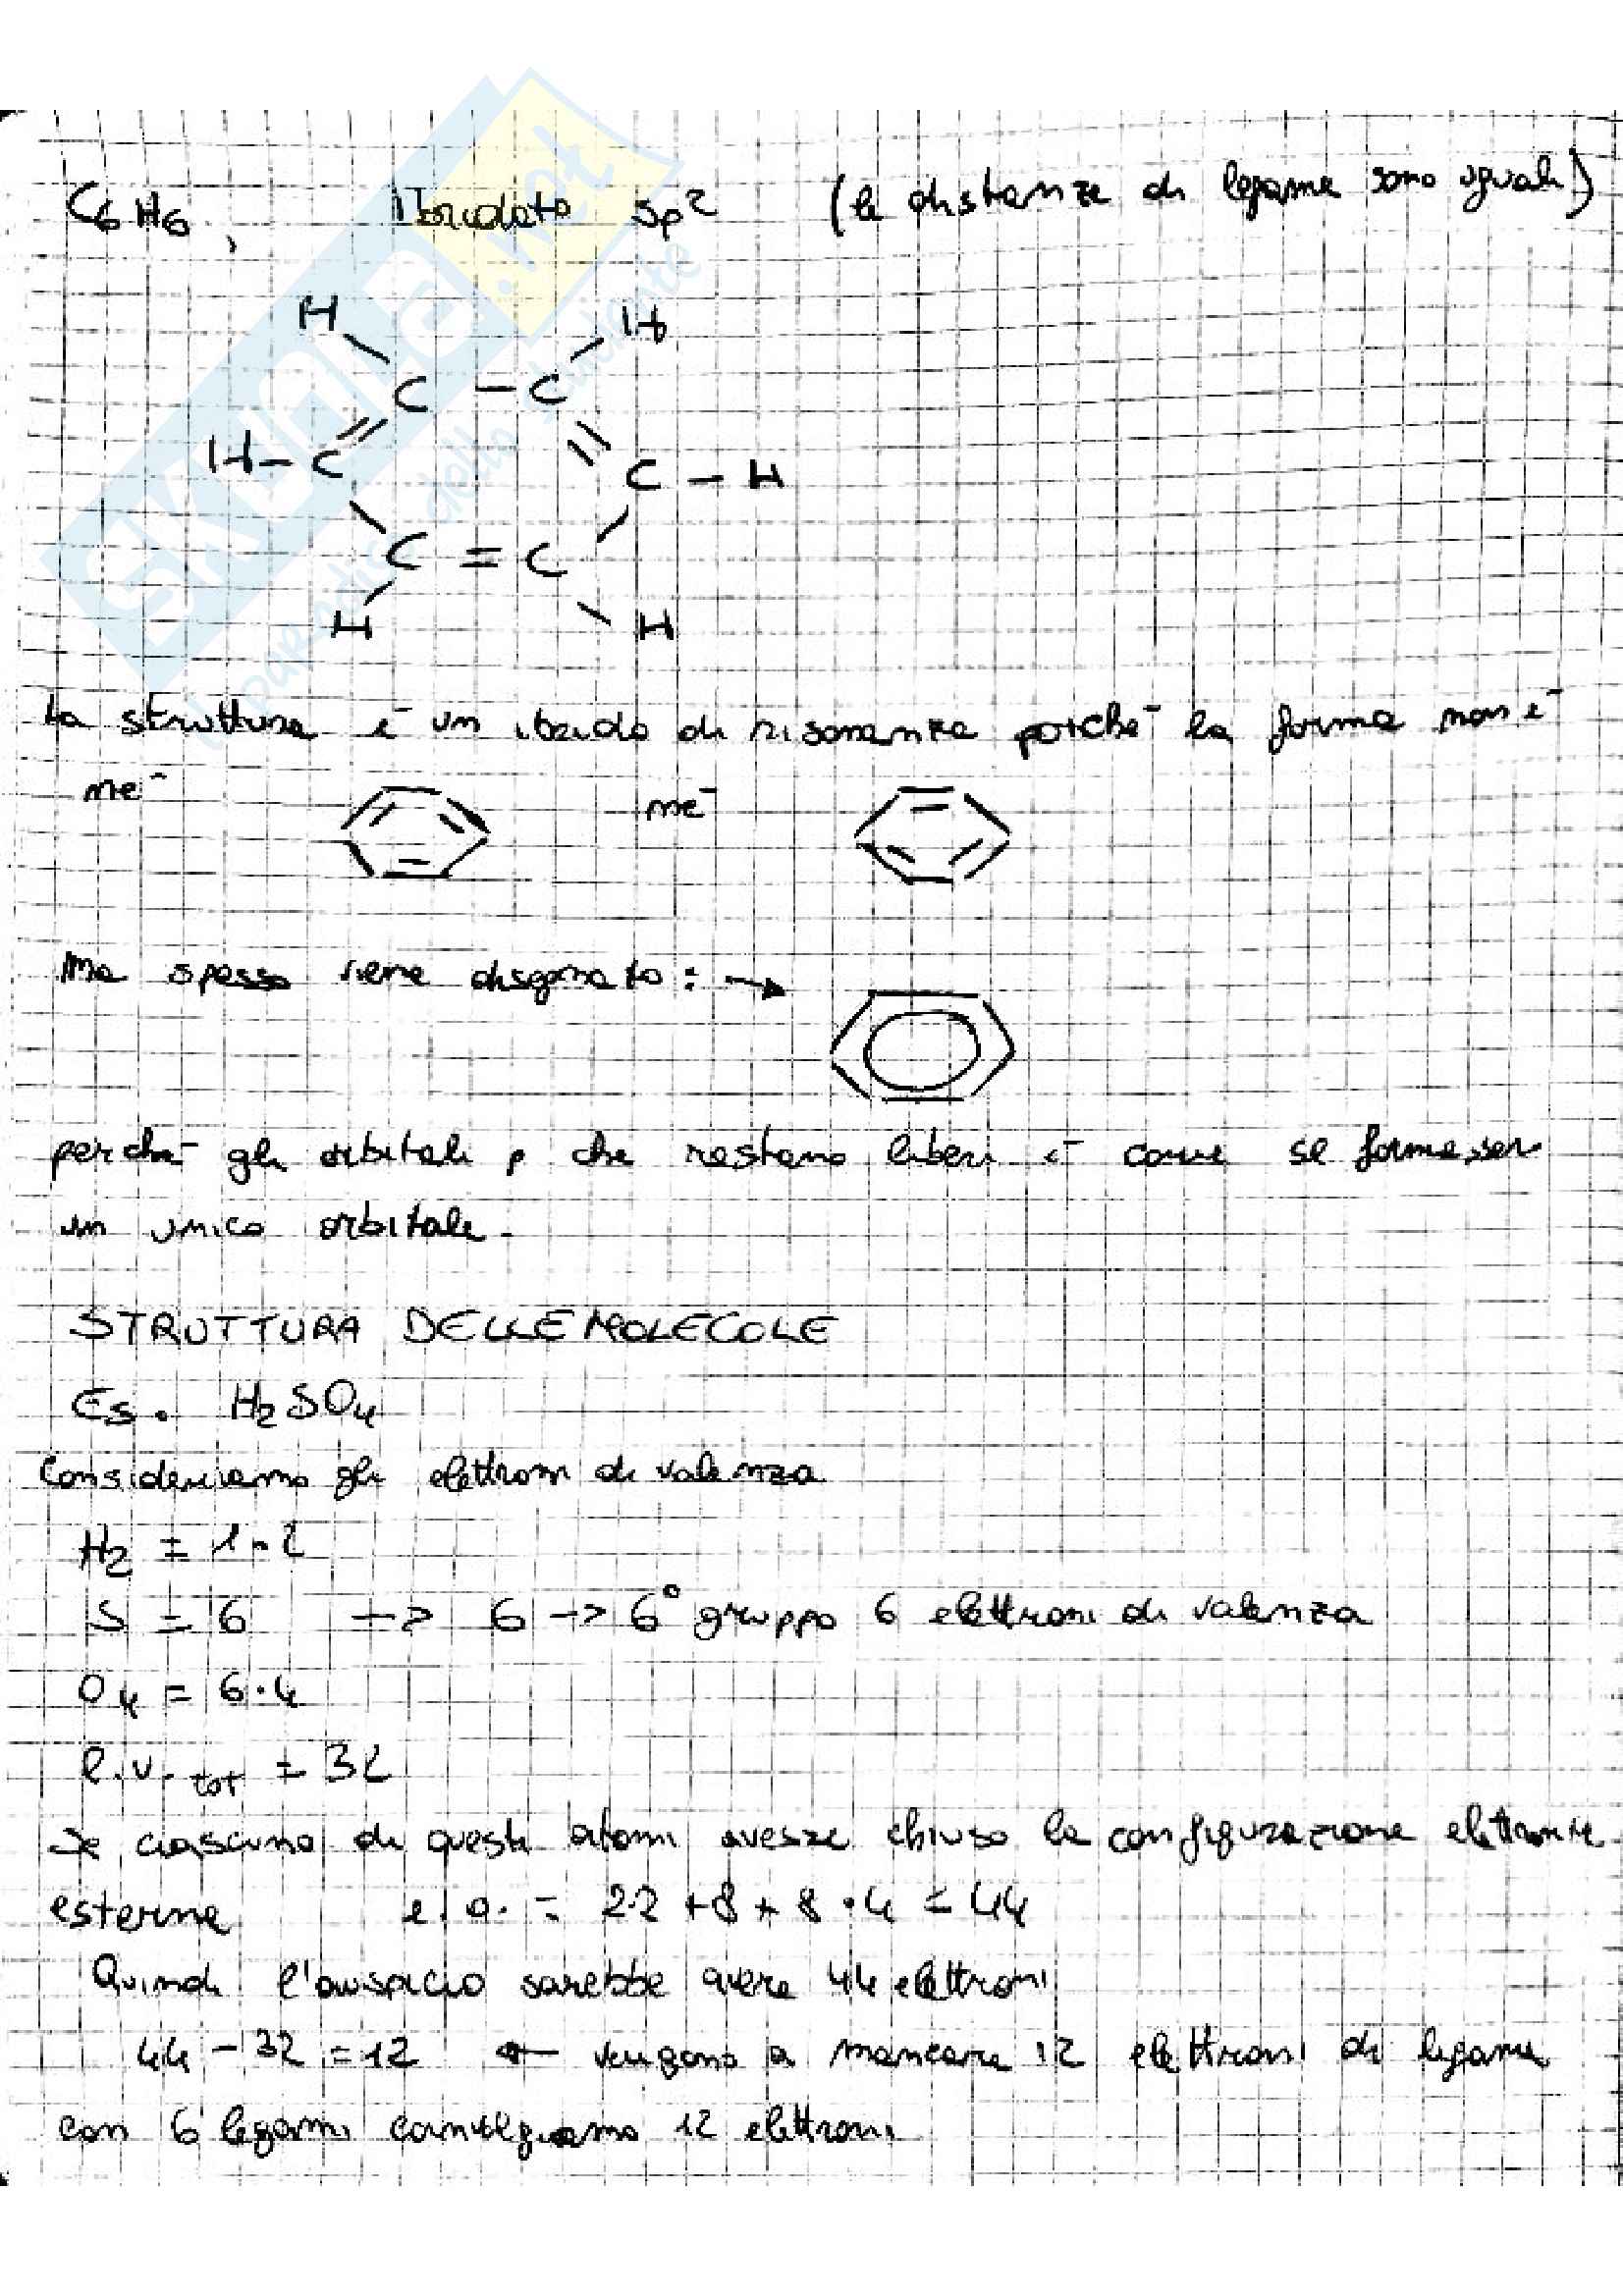 C6H6, Ibridato sp2 (le distanze di legame sono uguali)
H H
C - C
H - C C - H
C = C
H H
La struttura è un ibrido di risonanza poiché la forma non è
né né
Ma spesso viene disegnato: →
perché gli orbitali p che restano liberi è come se formassero
un unico orbitale.
STRUTTURA DELLE MOLECOLE
Es. H2SO4
Consideriamo gli elettroni di valenza
H2 = 1·2
S = 6 -> 6 -> 6° gruppo 6 elettroni di valenza
O4 = 6·4
e.v. tot = 32
Se ciascuno di questi atomi avesse chiuso la configurazione elettronica
esterna e.a. = 2·2 + 8 + 8·4 = 44
Quindi l'auspicio sarebbe avere 44 elettroni
44 - 32 = 12 ← vengono a mancare 12 elettroni di legame
con 6 legami coinvolgiamo 12 elettroni
SKUOLA.net
il paradiso dello studente